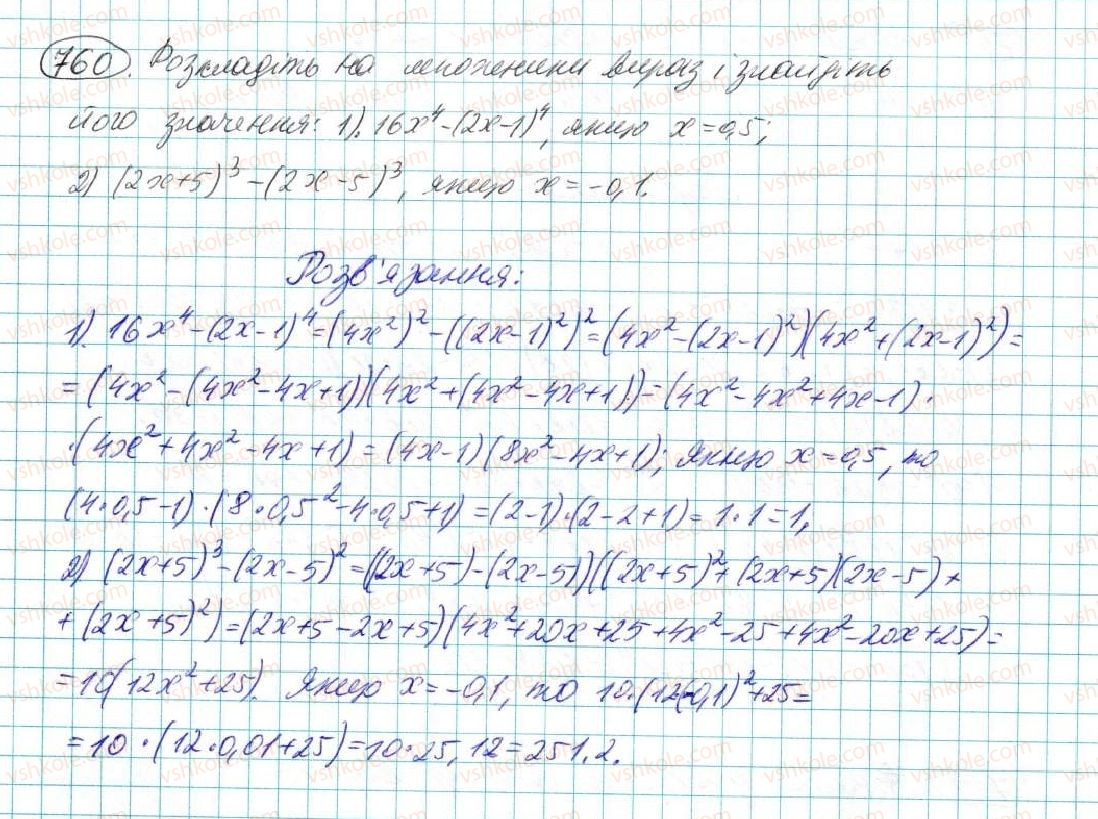 760. Розкладіть на множники вираз і знайдіть
його значення: 1). 16x⁴-(2x-1)⁴, якщо x=0,5;
2) (2x+5)³-(2x-5)³, якщо x=-0,1.
Розв'язання:
1). 16x⁴-(2x-1)⁴=(4x²)²-((2x-1)²)²=(4x²-(2x-1)²)(4x²+(2x-1)²)=
=(4x²-(4x²-4x+1))(4x²+(4x²-4x+1))=(4x²-4x²+4x-1)·
·(4x²+4x²-4x+1)=(4x-1)(8x²-4x+1); Якщо x=0,5, то
(4·0,5-1)·(8·0,5²-4·0,5+1)=(2-1)·(2-2+1)=1·1=1,
2) (2x+5)³-(2x-5)²=((2x+5)-(2x-5))((2x+5)²+(2x+5)(2x-5)+
+(2x+5)²)=(2x+5-2x+5)(4x²+20x+25+4x²-25+4x²-20x+25)=
=10(12x²+25). Якщо x=-0,1, то 10·(12(-0,1)²+25=
=10·(12·0,01+25)=10·25,12=251,2.
vshkole.com